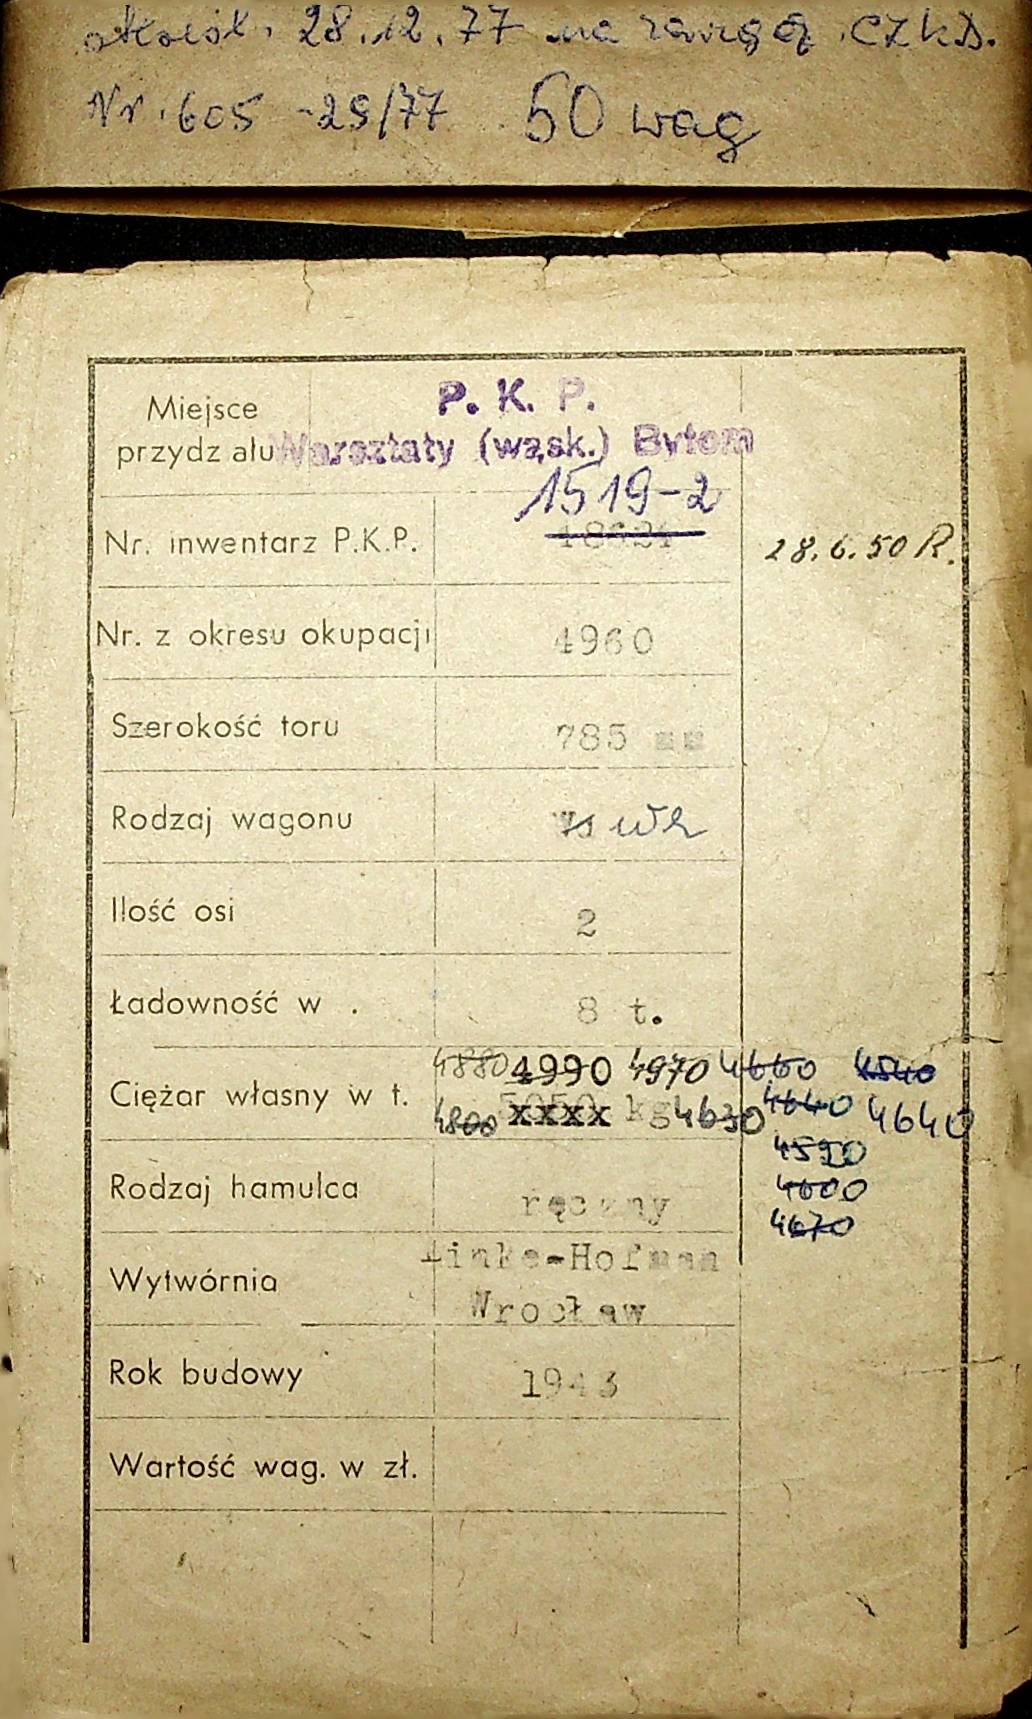 28.12.77 na CZKD.
Nr. 605 -29/77 50 wag
P. K. P.
Miejsce
przydz ału Warsztaty (wąsk.) Bytom
1519-2
Nr. inwentarz P.K.P. 28.6.50 R.
Nr. z okresu okupacji 4960
Szerokość toru 785 mm
Rodzaj wagonu Wz
Ilość osi 2
Ładowność w . 8 t.
4880 4990 4970 4660 4540
Ciężar własny w t.
4800 xxxx kg 4630 4640 4640
4590
4600
Rodzaj hamulca ręczny
4670
Linke-Hofman
Wytwórnia
Wrocław
Rok budowy 1943
Wartość wag. w zł.